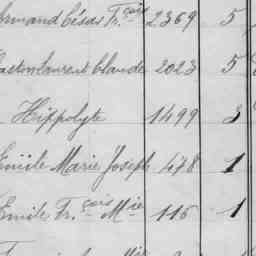 Armand César Fr.çois 2369 5
Gaston Laurent Claude 2023 5
Hippolyte 1499 3
Emile Marie Joseph 478 1
Emile Fr.çois M.ie 115 1